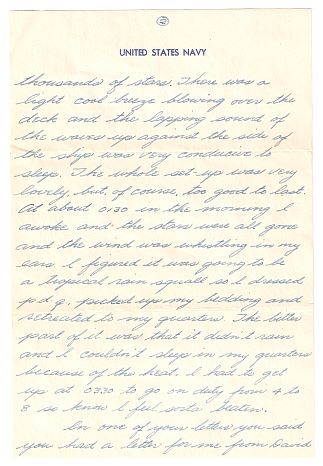 2
UNITED STATES NAVY
thousands of stars. There was a
light cool breeze blowing over the
deck and the lapping sound of
the waves up against the side of
the ship was very conducive to
sleep. The whole set-up was very
lovely, but, of course, too good to last.
At about 0130 in the morning I
awoke and the stars were all gone
and the wind was whistling in my
ears. I figured it was going to be
a tropical rain squall so I dressed
p.d.q. picked up my bedding and
retreated to my quarters. The bitter
part of it was that it didn't rain
and I couldn't sleep in my quarters
because of the heat. I had to get
up at 0330 to go on duty from 4 to
8 so know I feel sorta beaten.
In one of your letters you said
you had a letter for me from David